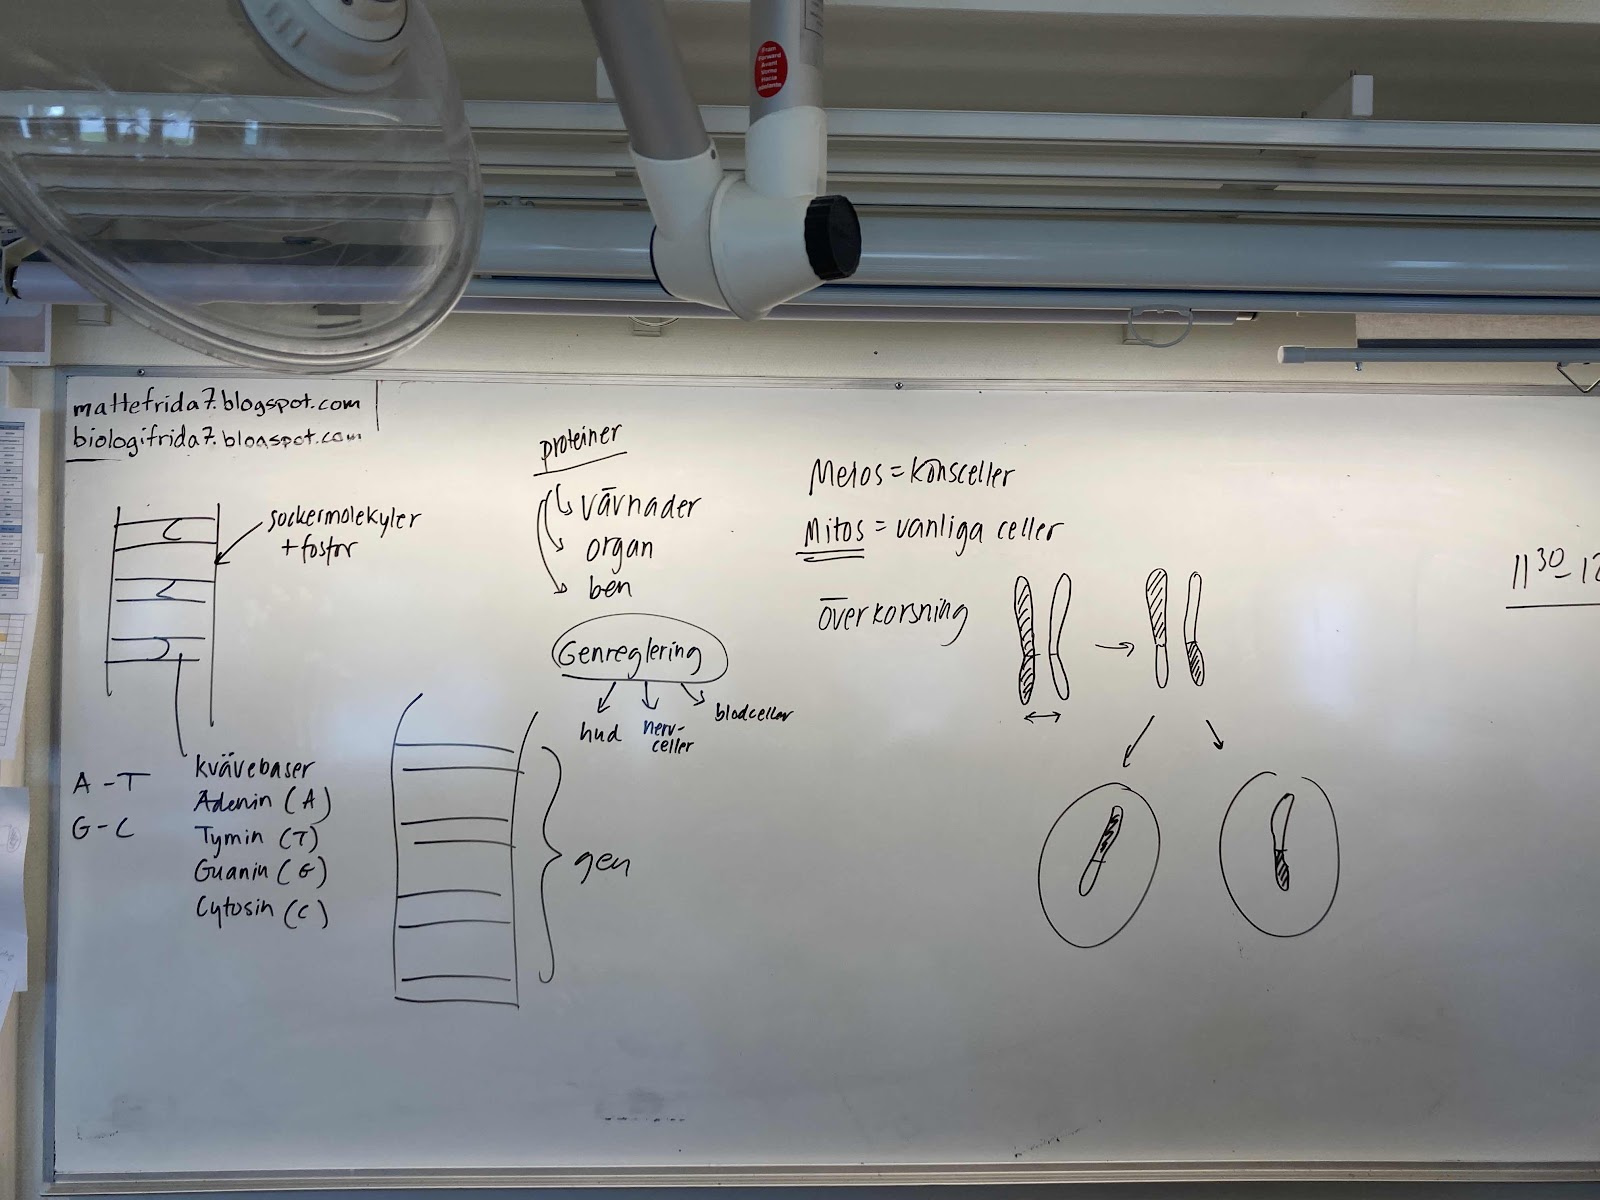 From
Forward
Avant
Vorne
Hacia
adelante
mattefrida7.blogspot.com
biologifrida7.blogspot.com
sockermolekyler
+ fosfor
kvävebaser
Adenin (A)
Tymin (T)
Guanin (G)
Cytosin (C)
A - T
G - C
proteiner
vävnader
organ
ben
Genreglering
hud
nerv-
celler
blodceller
gen
Meios = könsceller
Mitos = vanliga celler
överkorsning
→
11 30 - 12